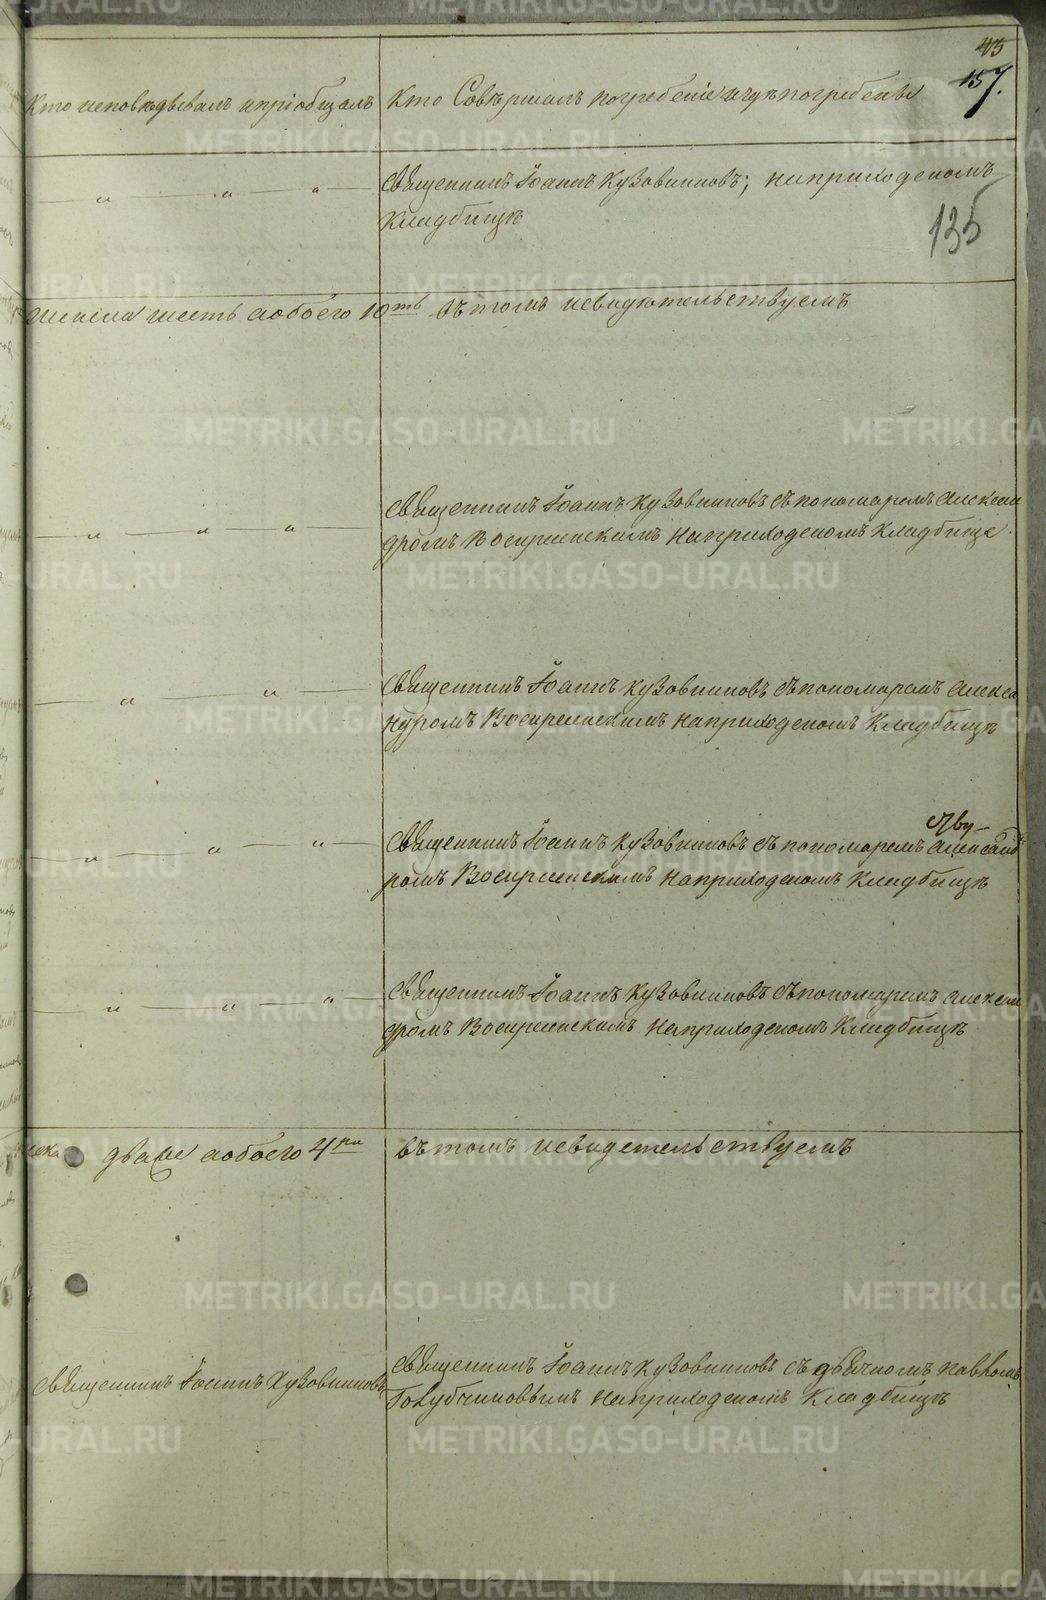 45
157.
Кто исповѣдывалъ и пріобщалъ
Кто Совѣршалъ погребеніе и гдѣ погребены
Священникъ Іоаннъ Кузовниковъ; на приходскомъ
Кладбищѣ
135
шесть а обоего 10ть въ томъ и свидѣтельствуемъ
Священникъ Іоаннъ Кузовниковъ съ пономаремъ Алексан
дромъ Воскресенскимъ На приходскомъ Кладбище.
Священникъ Іоаннъ Кузовниковъ съ пономаремъ Алекса
ндромъ Воскресенскимъ на приходскомъ Кладбищѣ
Священникъ Іоаннъ Кузовниковъ съ пономаремъ Александ
ромъ Воскресенскимъ на приходскомъ Кладбищѣ
Священникъ Іоаннъ Кузовниковъ съ пономаремъ Алексан
дромъ Воскресенскимъ На приходскомъ Кладбищѣ
двое а обоего 4ре въ томъ и свидетельствуемъ
Священникъ Іоаннъ Кузовниковъ
Священникъ Іоаннъ Кузовниковъ съ дьячкомъ Павломъ
Голубчиковымъ На приходскомъ Кладбищѣ
METRIKI.GASO-URAL.RU